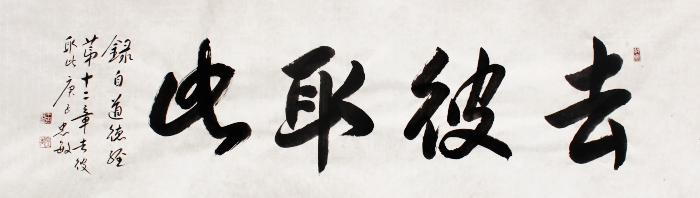 去彼取此
錄自道德經
第十二章去彼
取此 庚子忠敏